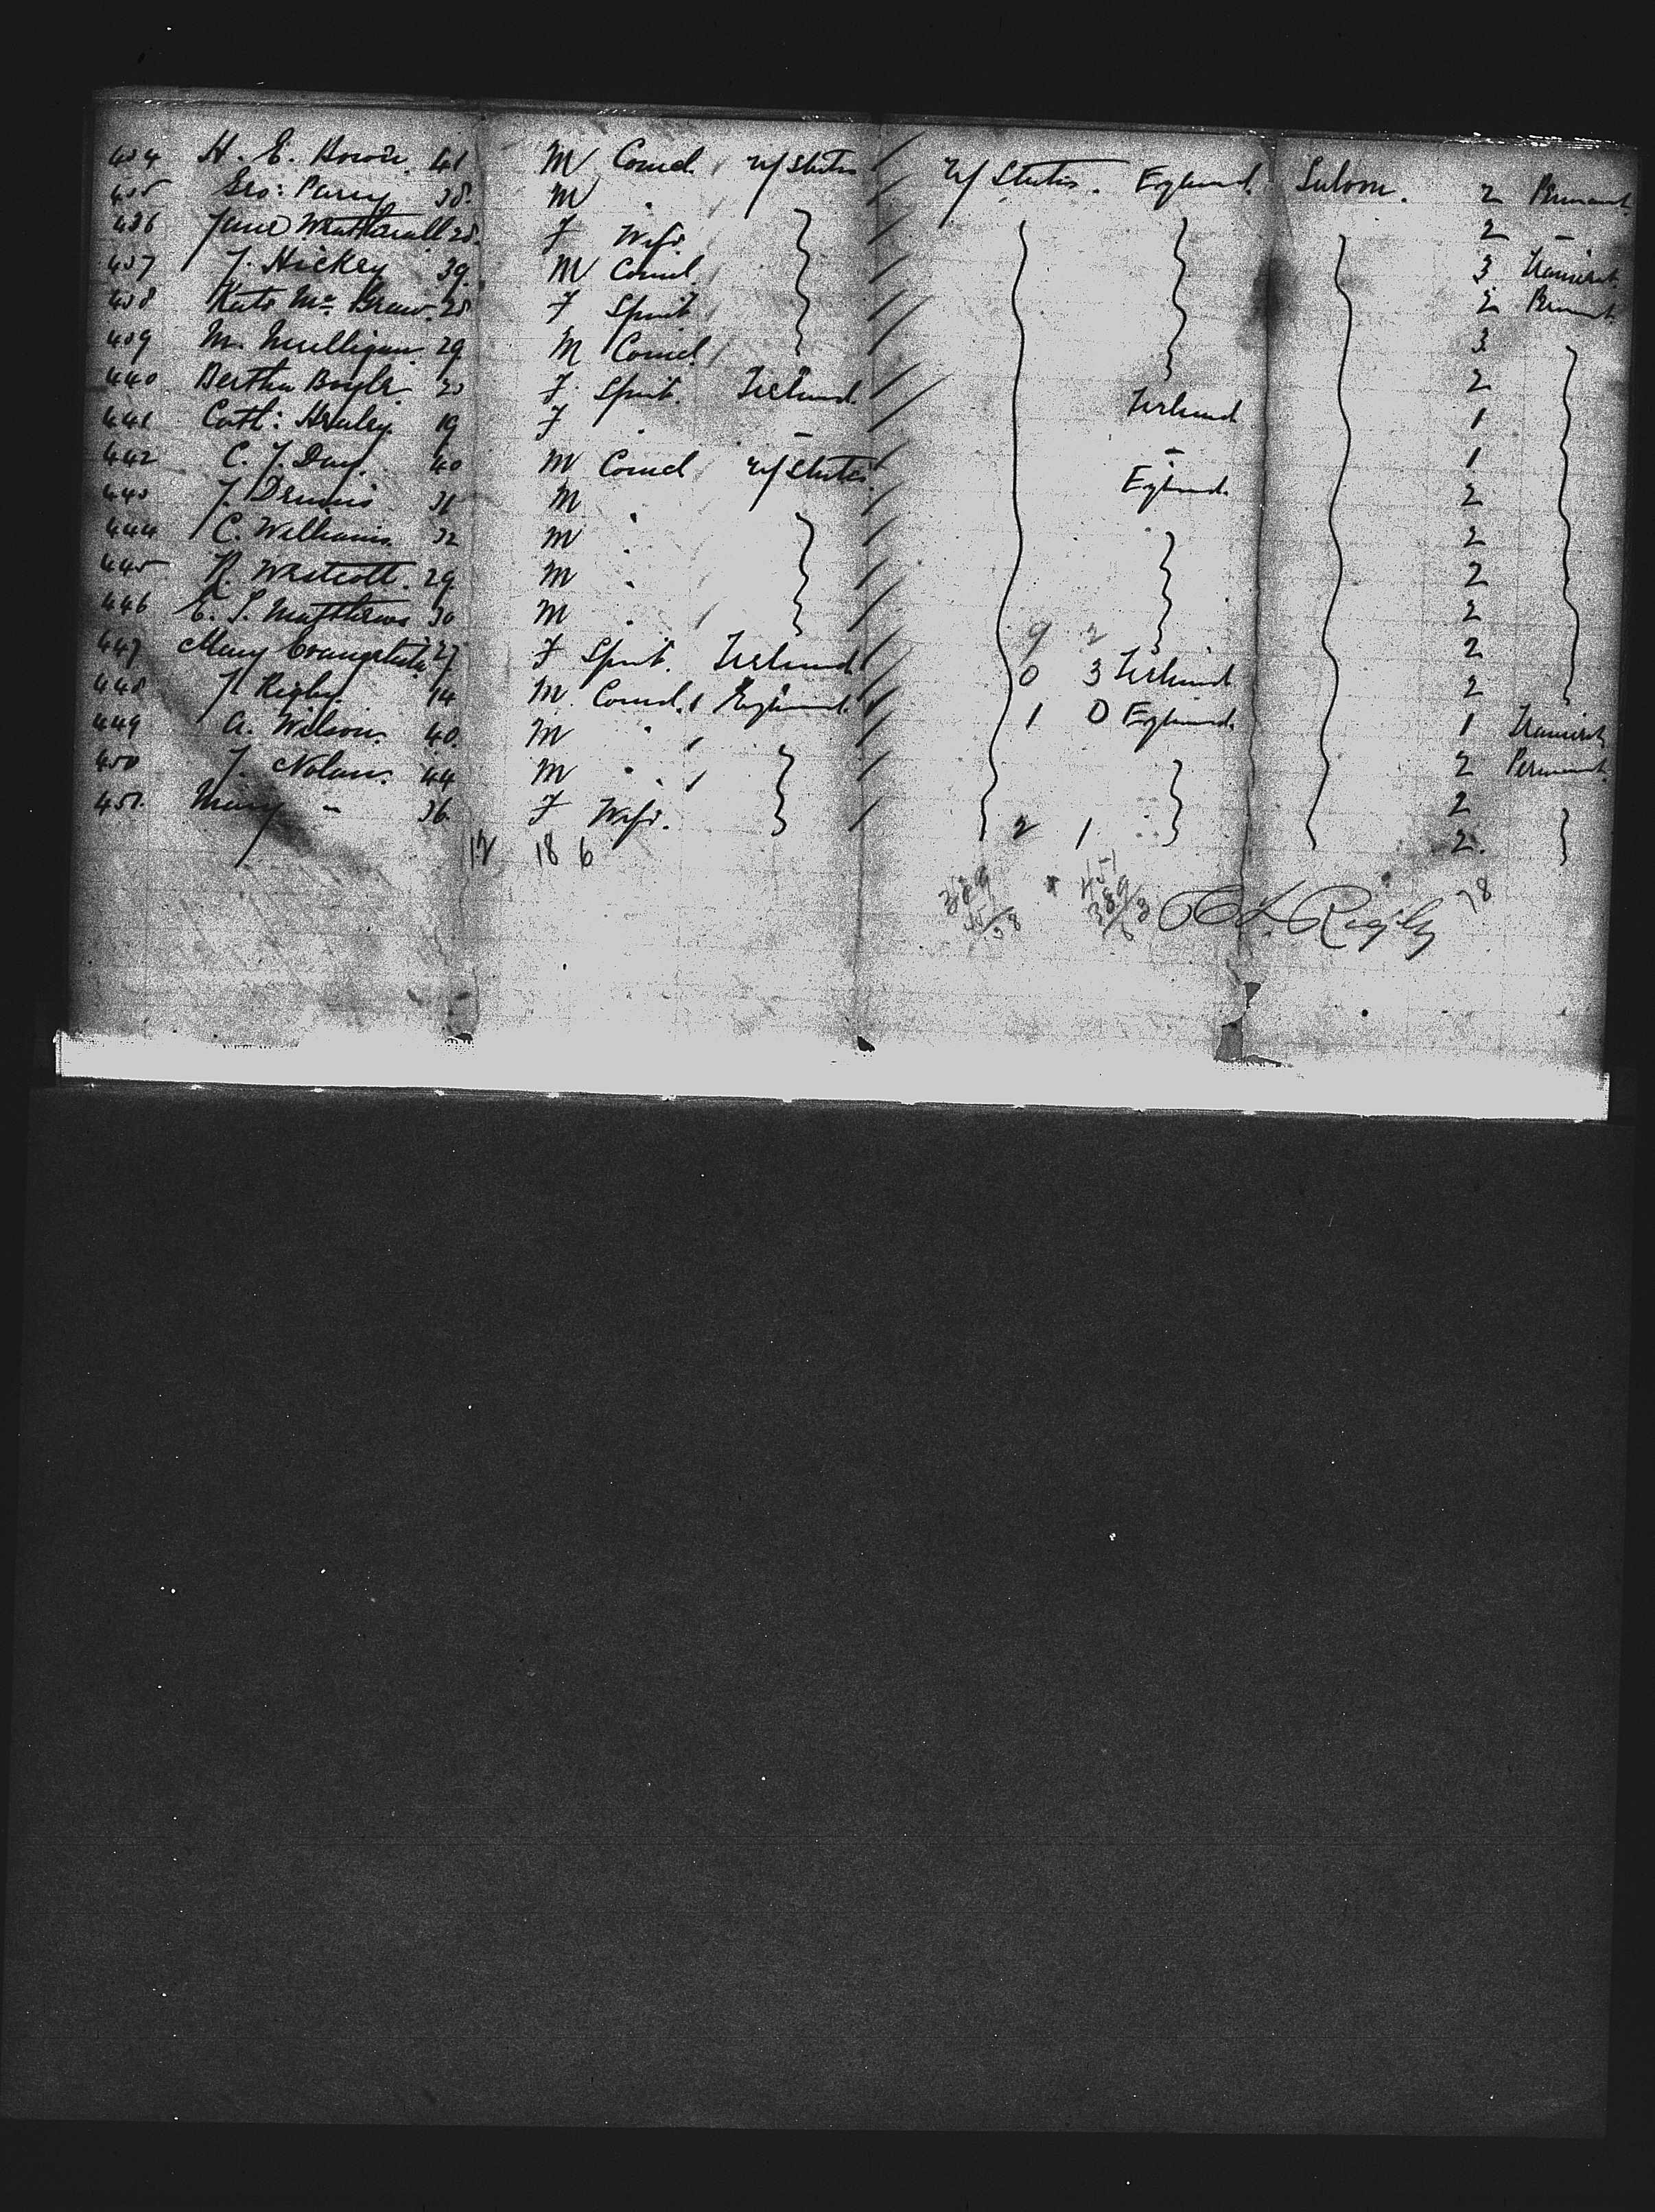 434 H. E. 41 M Comcl. U/States U/States. England. Saloon. 2 Permant.
435 Geo: Parry 38. M " 2 –
436 Jane Weatherall 28. F Wife 3 Transient.
437 J. Hickey 39. M Comcl. 2 Permant.
438 Kate Mc 28 F Spinst 3
439 M. Mulligan 29 M Comcl 2
440 Bertha Boyle 20 F. Spinst. Ireland. Ireland 1
441 Cath: Healey. 19 F – – 1
442 C. J. Day. 40 M Comcl U/States. England. 2
443 J. Dennis 31 M " 2
444 C. Williams. 32 M " 2
445 R. Westcott. 29 M " 2
446 E. S. Matthews 30 M " 9 2 2
447 Mary 27 F Spinst. Ireland 0 3 Ireland 2
448 J. Rigby. 14 M. Comcl. England. 1 0 England. 1 Transient
449 A. Wilson. 40. M " 2 Permant.
450 J. Nolan. 44 M " 2
451. Mary – 36. F Wife. 2 1 2.
12 18 6
389 451
389
63
Rigby 78